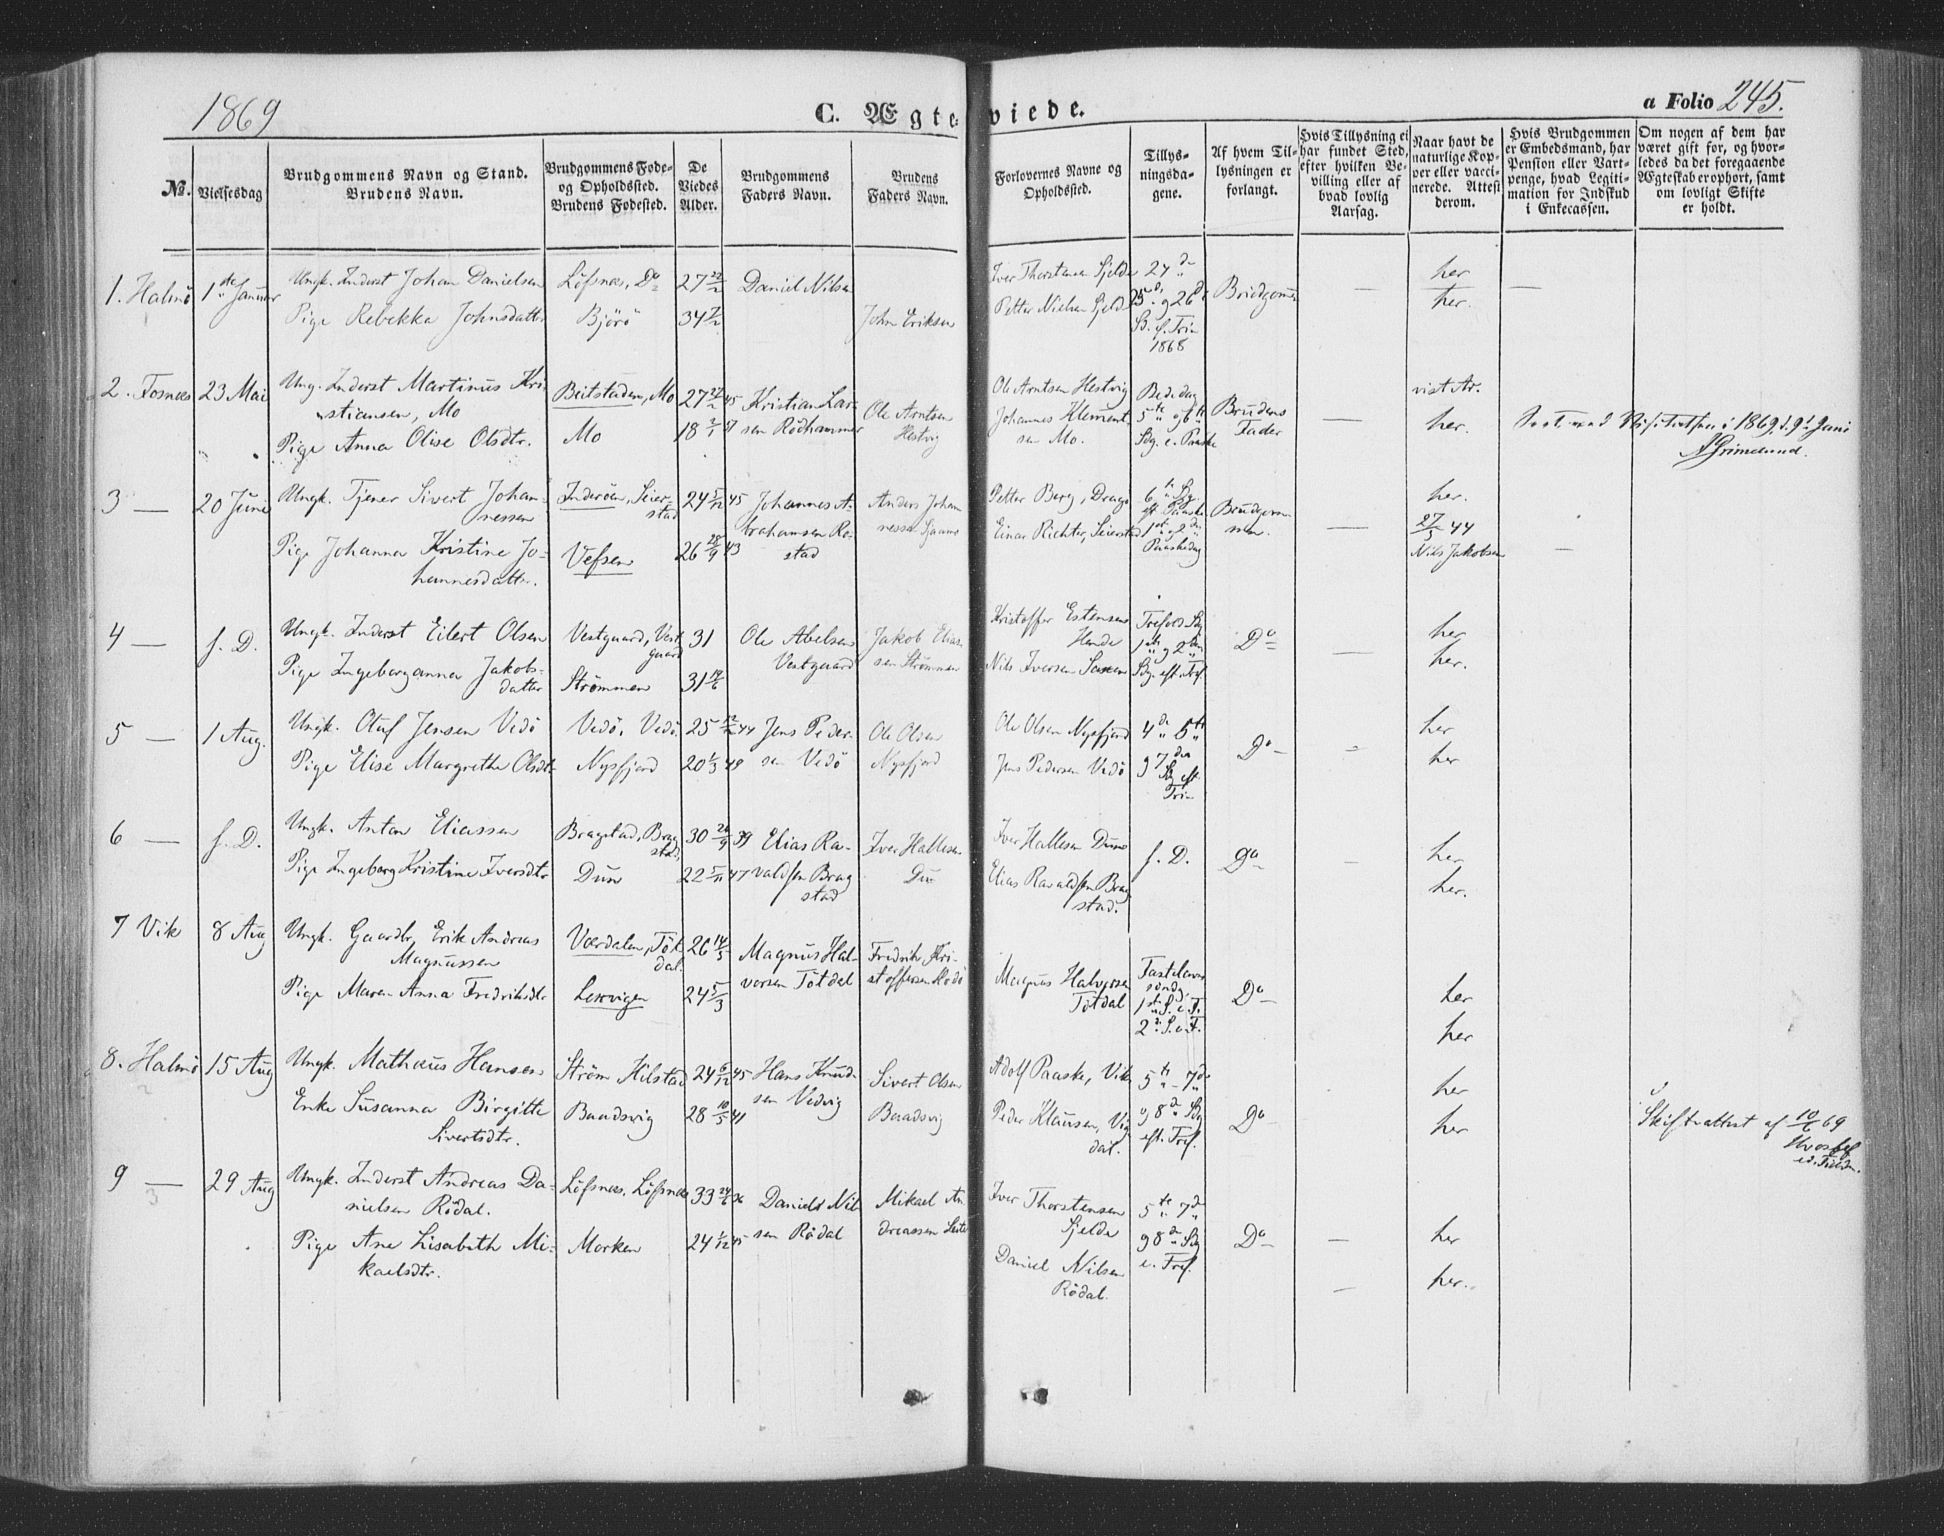 1869
C. Ægte-
viede.
a Folio 245.
No.
Vielsesdag
Brudgommens Navn og Stand.
Brudens Navn.
Brudgommens Føde-
og Opholdssted.
Brudens Fødested.
De
Viedes
Alder.
Brudgommens
Faders Navn.
Brudens
Faders Navn.
Forlovernes Navne og
Opholdssted.
Tillys-
ningsda-
gene.
Af hvem Til-
lysningen er
forlangt.
Hvis Tillysning ei
har fundet Sted,
efter hvilken Be-
villing eller af
hvad lovlig
Aarsag.
Naar havt de
naturlige Kop-
per eller vacci-
nerede. Attest
derom.
Hvis Brudgommen
er Embedsmand, har
Pension eller Vart-
penge, hvad Legiti-
mation for Indskud
i Enkecassen.
Om nogen af dem har
været gift før, og hvor-
ledes da det foregaaende
Ægteskab er ophørt, samt
om lovligt Skifte
er holdt.
1. Halmø 1ste Januar
Ungk. Inderst Johan Danielsen
Pige Rebekka Johnsdatter
Löfsnæs, Do
Björö
27 22/2
34 7/2
Daniel Nilsen
John Eriksen
Iver Thorstensen Sjelde
Petter Nielsen Sjelde
24d
25d. og 26d
S. e. Tri-
1868
Brudgommen
—
her
her.
—
2. Fosnæs 23 Mai
Ung. Inderst Martinus Kri-
stiansen, Mo
Pige Anna Olise Olsdtr.
Beitstaden, Mo
Mo
Kristian Lar-
sen Rödhammer
Ole Arntsen
Hestvig
Ole Arntsen Hestvig
Johannes Klement-
sen Mo.
Bededag
5te og 6te
Sdg. e. Paaske
Brudens
Fader
—
vist At.
her.
1869 d. 9d Juni
Grimelund.
3 — 20 Juni
Ungk. Tjener Sivert Johan-
nessen
Pige Johanna Kristine Jo-
hannesdatter.
Inderöen, Seier-
stad
Vefsen
24 5/12 45
26 28/9 43
Johannes A-
brahamsen Ro-
stad
Anders Johan-
nessen
Petter Berg, Drage
Einar Richter, Seierstad
6te Sg
eft. Paaske
1ste og 2den
Paaskedag
Brudgom-
men.
—
her.
27/5 44
Nils Jakobsen
—
4 — f. D.
Ungk. Inderst Eilert Olsen
Pige Ingeborganna Jakobs-
datter
Vestgaard, Vest-
gaard
Strömmen
31
31 19/6
Ole Abelsen
Vestgaard
Jakob Elias-
sen Strömmen
Kristoffer Estensen
Hende
Nils Iversen
Trefold. Sg
1ste og 2den
Sg. eft. Tref.
Do
—
her
her.
5 — 1 Aug.
Ungk. Oluf Jensen Vedö
Pige Elise Margrethe Olsdtr
Vedö, Vedö.
Nysfjord
25 12/12 44
20 1/3 49
Jens Peder-
sen Vedö
Ole Olsen
Nysfjord
Ole Olsen Nysfjord
Jens Pedersen Vedö
4d 6te
og 7den
Sg eft.
Tri-
Do
her
her
6 — f. D.
Ungk. Anton Eliassen
Pige Ingeborg Kristine Iversdtr
Bragstad, Brag-
stad.
Dun
30 26/9 39
22 5/11 47
Elias Ra-
valdsen Brag-
stad
Iver Hallesen
Dun
Iver Hallesen Duns
Elias Ravaldsen Brag-
stad.
f. D.
Do
—
her
her.
7 Vik 8 Aug
Ungk. Gaardbr, Erik Andreas
Magnussen
Pige Maren Anna Fredriksdtr
Værdalen, Töt-
dal.
Lexvigen
26 14/5
24 5/3
Magnus Hal-
vorsen Tötdal
Fredrik Kri-
stoffersen Modö
Magnus Halvorsen
Tötdal
Fastelavns
söndg.
1ste S. e. F.
2d. S. e. F.
Do
her
her
8. Halmö 15 Aug
Ungk. Mathæus Hansen
Enke Susanna Birgitte
Sivertsdtr.
Ström Kilstad
Baadsvig
24 6/12 45
28 10/5 41
Hans Knud-
sen Vedvig
Sivert Olsen
Baadsvig
Adolf Paaske, Vik
Peder Klausen, Vig-
dal.
5te 7d
og 8d Sg
eft. Tref.
Do
her
her
Skifteattest af 10/6 69
9 — 29 Aug
Ungk. Inderst Andreas Da-
nielsen Rödal.
Pige Ane Lisabeth Mi-
kaelsdtr.
Löfsnæs, Löfsnæs
Morken
33 24/6 36
24 1/12 45
Daniel Nil-
sen Rödal
Mikael An-
dreassen
Iver Thorstensen
Sjelde
Daniel Nilsen
Rödal.
5te 7d
og 8d Sg
e. Tref.
Do
—
her
her.